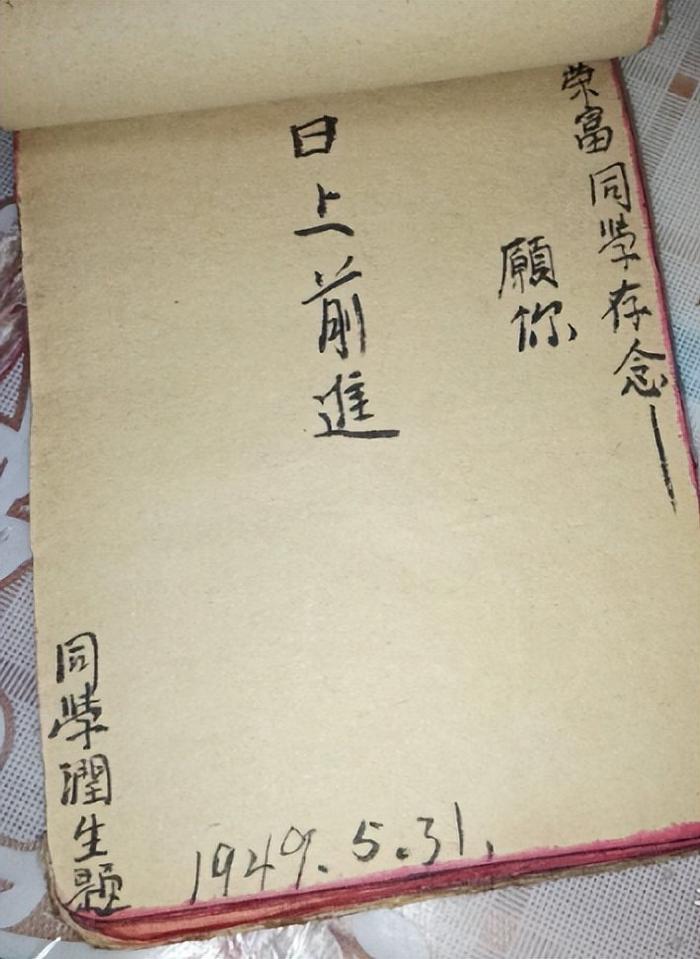 荣富同學存念
願你
日上前進
同學潤生題
1949.5.31.